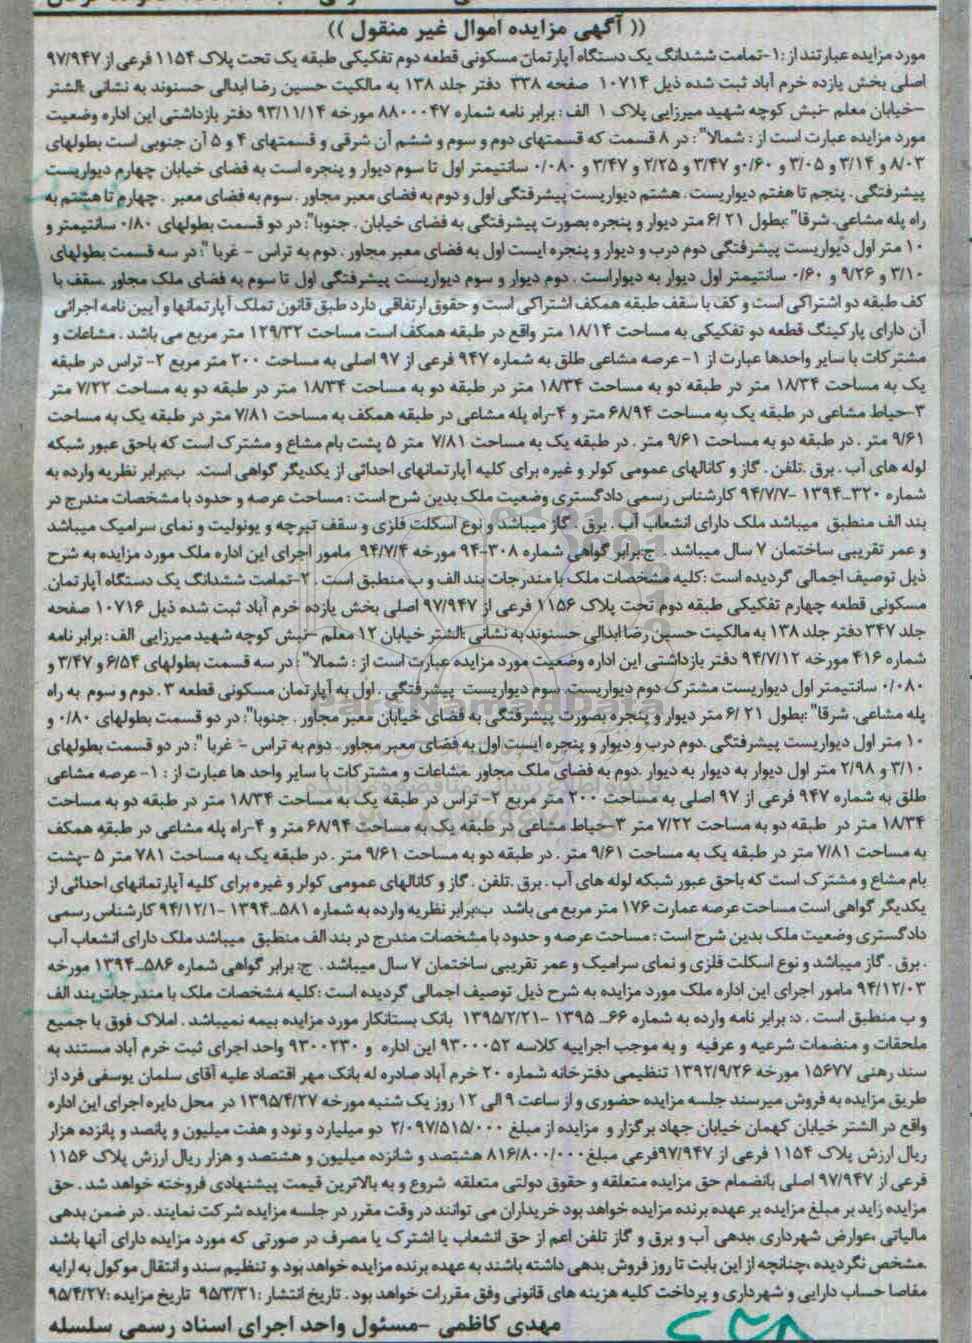 (( آگهی مزایده اموال غیر منقول ))
مورد مزایده عبارتند از :۱-تمامت ششدانگ یک دستگاه آپارتمان مسکونی قطعه دوم تفکیکی طبقه یک تحت پلاک ۱۱۵۴ فرعی از ۹۷/۹۴۷
اصلی بخش یازده خرم آباد ثبت شده ذیل ۱۰۷۱۴ صفحه ۳۳۸ دفتر جلد ۱۳۸ به مالکیت حسین رضا ابدالی حسنوند به نشانی :الشتر
-خیابان معلم -نبش کوچه شهید میرزایی پلاک ۱ الف : برابر نامه شماره ۸۸۰۰۰۴۷ مورخه ۹۳/۱۱/۱۴ دفتر بازداشتی این اداره وضعیت
مورد مزایده عبارت است از : شمالا" : در ۸ قسمت که قسمتهای دوم و سوم و ششم آن شرقی و قسمتهای ۴ و ۵ آن جنوبی است بطولهای
۸/۰۳ و ۳/۱۴ و ۳/۰۵ و ۰/۶۰ و ۳/۴۷ و ۲/۲۵ و ۳/۴۷ و ۰/۰۸۰ سانتیمتر اول تا سوم دیوار و پنجره است به فضای خیابان چهارم دیواریست
پیشرفتگی . پنجم تا هفتم دیواریست . هشتم دیواریست پیشرفتگی اول و دوم به فضای معبر مجاور . سوم به فضای معبر . چهارم تا هشتم به
راه پله مشاعی. شرقا" :بطول ۶/۲۱ متر دیوار و پنجره بصورت پیشرفتگی به فضای خیابان . جنوبا": در دو قسمت بطولهای ۰/۸۰ سانتیمتر و
۱۰ متر اول دیواریست پیشرفتگی دوم درب و دیوار و پنجره ایست اول به فضای معبر مجاور . دوم به تراس - غربا ": در سه قسمت بطولهای
۳/۱۰ و ۹/۲۶ و ۰/۶۰ سانتیمتر اول دیوار به دیواراست . دوم دیوار و سوم دیواریست پیشرفتگی اول تا سوم به فضای ملک مجاور .سقف با
کف طبقه دو اشتراکی است و کف با سقف طبقه همکف اشتراکی است و حقوق ارتفاقی دارد طبق قانون تملک آپارتمانها و آیین نامه اجرائی
آن دارای پارکینگ قطعه دو تفکیکی به مساحت ۱۸/۱۴ متر واقع در طبقه همکف است مساحت ۱۲۹/۳۲ متر مربع می باشد . مشاعات و
مشترکات با سایر واحدها عبارت از ۱- عرصه مشاعی طلق به شماره ۹۴۷ فرعی از ۹۷ اصلی به مساحت ۲۰۰ متر مربع ۲- تراس در طبقه
یک به مساحت ۱۸/۳۴ متر در طبقه دو به مساحت ۱۸/۳۴ متر در طبقه دو به مساحت ۱۸/۳۴ متر در طبقه دو به مساحت ۷/۲۲ متر
۳-حیاط مشاعی در طبقه یک به مساحت ۶۸/۹۴ متر و ۴-راه پله مشاعی در طبقه همکف به مساحت ۷/۸۱ متر در طبقه یک به مساحت
۹/۶۱ متر . در طبقه دو به مساحت ۹/۶۱ متر . در طبقه یک به مساحت ۷/۸۱ متر ۵ پشت بام مشاع و مشترک است که باحق عبور شبکه
لوله های آب . برق .تلفن . گاز و کانالهای عمومی کولر و غیره برای کلیه آپارتمانهای احداثی از یکدیگر گواهی است. ب:برابر نظریه وارده به
شماره ۳۲۰-۱۳۹۴ -۹۴/۷/۷ کارشناس رسمی دادگستری وضعیت ملک بدین شرح است : مساحت عرصه و حدود با مشخصات مندرج در
بند الف منطبق میباشد ملک دارای انشعاب آب . برق . گاز میباشد و نوع اسکلت فلزی و سقف تیرچه و یونولیت و نمای سرامیک میباشد
و عمر تقریبی ساختمان ۷ سال میباشد . ج:برابر گواهی شماره ۳۰۸-۹۴ مورخه ۹۴/۷/۴ مامور اجرای این اداره ملک مورد مزایده به شرح
ذیل توصیف اجمالی گردیده است :کلیه مشخصات ملک با مندرجات بند الف و ب منطبق است . ۲-تمامت ششدانگ یک دستگاه آپارتمان
مسکونی قطعه چهارم تفکیکی طبقه دوم تحت پلاک ۱۱۵۶ فرعی از ۹۷/۹۴۷ اصلی بخش یازده خرم آباد ثبت شده ذیل ۱۰۷۱۶ صفحه
جلد ۳۴۷ دفتر جلد ۱۳۸ به مالکیت حسین رضا ابدالی حسنوند به نشانی :الشتر خیابان ۱۲ معلم -نبش کوچه شهید میرزایی الف : برابر نامه
شماره ۴۱۶ مورخه ۹۴/۷/۱۲ دفتر بازداشتی این اداره وضعیت مورد مزایده عبارت است از : شمالا" : در سه قسمت بطولهای ۶/۵۴ و ۳/۴۷ و
۰/۰۸۰ سانتیمتر اول دیواریست مشترک دوم دیواریست. سوم دیواریست پیشرفتگی . اول به آپارتمان مسکونی قطعه ۳ . دوم و سوم به راه
پله مشاعی. شرقا" :بطول ۶/۲۱ متر دیوار و پنجره بصورت پیشرفتگی به فضای خیابان معبر مجاور . جنوبا": در دو قسمت بطولهای ۰/۸۰ و
۱۰ متر اول دیواریست پیشرفتگی .دوم درب و دیوار و پنجره ایست اول به فضای معبر مجاور . دوم به تراس - غربا ": در دو قسمت بطولهای
۳/۱۰ و ۲/۹۸ متر اول دیوار به دیوار به دیوار .دوم به فضای ملک مجاور .مشاعات و مشترکات با سایر واحد ها عبارت از : ۱- عرصه مشاعی
طلق به شماره ۹۴۷ فرعی از ۹۷ اصلی به مساحت ۲۰۰ متر مربع ۲- تراس در طبقه یک به مساحت ۱۸/۳۴ متر در طبقه دو به مساحت
۱۸/۳۴ متر در طبقه دو به مساحت ۷/۲۲ متر ۳-حیاط مشاعی در طبقه یک به مساحت ۶۸/۹۴ متر و ۴-راه پله مشاعی در طبقه همکف
به مساحت ۷/۸۱ متر در طبقه یک به مساحت ۹/۶۱ متر . در طبقه دو به مساحت ۹/۶۱ متر . در طبقه یک به مساحت ۷۸۱ متر ۵ -پشت
بام مشاع و مشترک است که باحق عبور شبکه لوله های آب . برق .تلفن . گاز و کانالهای عمومی کولر و غیره برای کلیه آپارتمانهای احداثی از
یکدیگر گواهی است مساحت عرصه عمارت ۱۷۶ متر مربع می باشد ب:برابر نظریه وارده به شماره ۵۸۱-۱۳۹۴ -۹۴/۱۲/۱ کارشناس رسمی
دادگستری وضعیت ملک بدین شرح است : مساحت عرصه و حدود با مشخصات مندرج در بند الف منطبق میباشد ملک دارای انشعاب آب
. برق . گاز میباشد و نوع اسکلت فلزی و نمای سرامیک و عمر تقریبی ساختمان ۷ سال میباشد . ج: برابر گواهی شماره ۵۸۶-۱۳۹۴ مورخه
۹۴/۱۲/۰۳ مامور اجرای این اداره ملک مورد مزایده به شرح ذیل توصیف اجمالی گردیده است :کلیه مشخصات ملک با مندرجات بند الف
و ب منطبق است . د: برابر نامه وارده به شماره ۶۶- ۱۳۹۵ -۱۳۹۵/۲/۲۱ بانک بستانکار مورد مزایده بیمه نمیباشد . املاک فوق با جمیع
ملحقات و منضمات شرعیه و عرفیه و به موجب اجراییه کلاسه ۹۳۰۰۰۵۲ این اداره و ۹۳۰۰۲۳۰ واحد اجرای ثبت خرم آباد مستند به
سند رهنی ۱۵۶۷۷ مورخه ۱۳۹۲/۹/۲۶ تنظیمی دفترخانه شماره ۲۰ خرم آباد صادره له بانک مهر اقتصاد علیه آقای سلمان یوسفی فرد از
طریق مزایده به فروش میرسند جلسه مزایده حضوری و از ساعت ۹ الی ۱۲ روز یک شنبه مورخه ۱۳۹۵/۴/۲۷ در محل دایره اجرای این اداره
واقع در الشتر خیابان کهمان خیابان جهاد برگزار و مزایده از مبلغ ۲/۰۹۷/۵۱۵/۰۰۰ دو میلیارد و نود و هفت میلیون و پانصد و پانزده هزار
ریال ارزش پلاک ۱۱۵۴ فرعی از ۹۷/۹۴۷فرعی مبلغ ۸۱۶/۸۰۰/۰۰۰ هشتصد و شانزده میلیون و هشتصد و هزار ریال ارزش پلاک ۱۱۵۶
فرعی از ۹۷/۹۴۷ اصلی بانضمام حق مزایده متعلقه و حقوق دولتی متعلقه شروع و به بالاترین قیمت پیشنهادی فروخته خواهد شد . حق
مزایده زاید بر مبلغ مزایده بر عهده برنده مزایده خواهد بود خریداران می توانند در وقت مقرر در جلسه مزایده شرکت نمایند . در ضمن بدهی
مالیاتی ،عوارض شهرداری ،بدهی آب و برق و گاز تلفن اعم از حق انشعاب یا اشترک یا مصرف در صورتی که مورد مزایده دارای آنها باشد
.مشخص نگردیده ،چنانچه از این بابت تا روز فروش بدهی داشته باشند به عهده برنده مزایده خواهد بود .و تنظیم سند و انتقال موکول به ارایه
مفاصا حساب دارایی و شهرداری و پرداخت کلیه هزینه های قانونی وفق مقررات خواهد بود . تاریخ انتشار :۹۵/۳/۳۱ تاریخ مزایده :۹۵/۴/۲۷
مهدی کاظمی -مسئول واحد اجرای اسناد رسمی سلسله
ParsNamadData